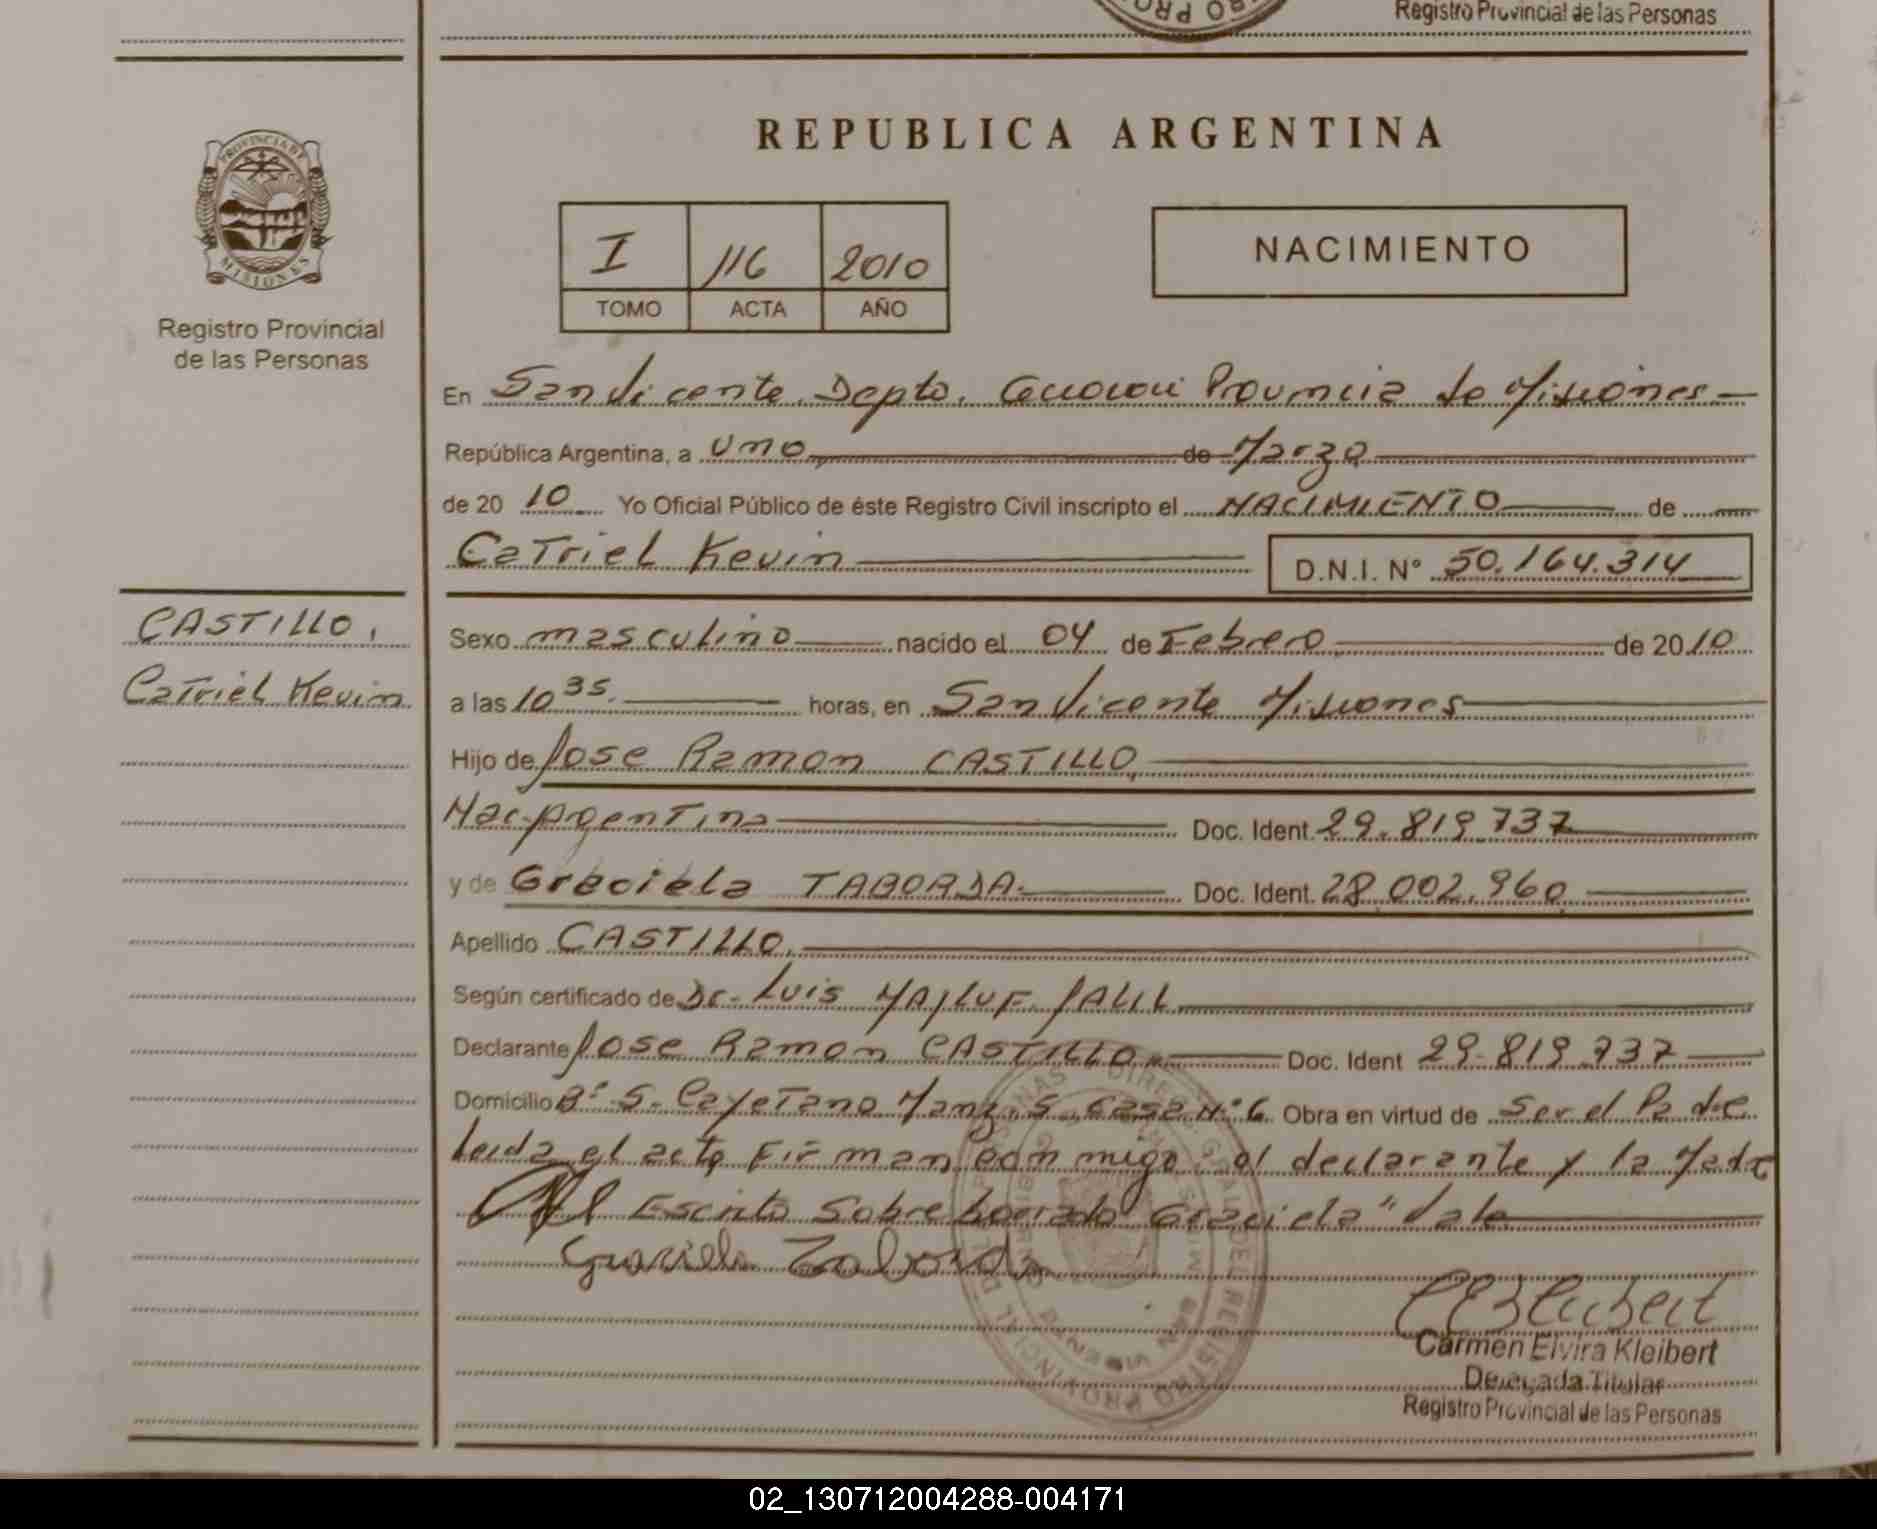 Registro Provincial de las Personas
REPUBLICA ARGENTINA
PROVINCIA DE
MISIONES
Registro Provincial
de las Personas
I 116 2010
TOMO ACTA AÑO
NACIMIENTO
En San Vicente Depto. Guarani Provincia de Misiones
República Argentina, a uno de Marzo
de 20 10 Yo Oficial Público de éste Registro Civil inscripto el NACIMIENTO de
Catriel Kevin D.N.I. N° 50.164.314
CASTILLO,
Catriel Kevin
Sexo masculino nacido el 04 de Febrero de 2010
a las 10 35 horas, en San Vicente Misiones
Hijo de Jose Ramon CASTILLO
Nac. Argentina Doc. Ident. 29.819.737
y de Graciela TABORDA Doc. Ident. 28.002.960
Apellido CASTILLO
Según certificado de Dr. Luis MAJLUF JALIL
Declarante Jose Ramon CASTILLO Doc. Ident 29.819.737
Domicilio B° S. Cayetano Manz. 5 Casa N° 6 Obra en virtud de Ser el Padre
leida el acta Firman conmigo el declarante y la Madre
Escrito Sobre borrado Graciela" Vale
Graciela Taborda
Carmen Elvira Kleibert
Delegada Titular
Registro Provincial de las Personas
02_130712004288-004171